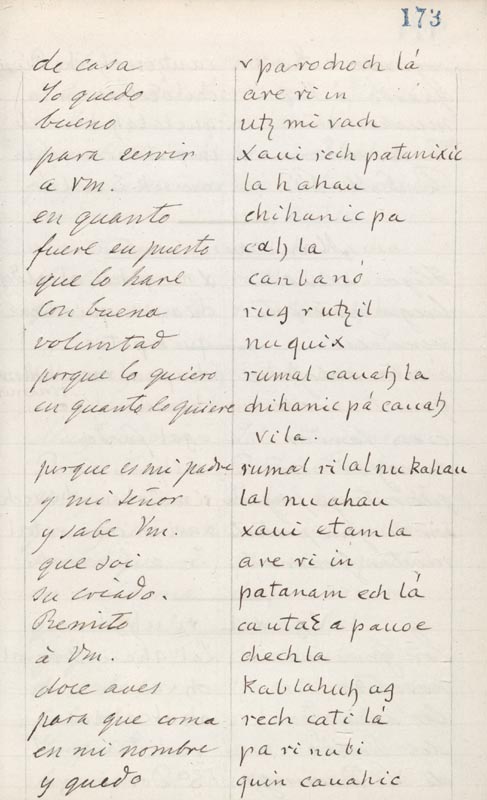 173
de casa r parochoch lá
Yo quedo are ri in
bueno utꜩ mi vach
para servir xaui rech patanixic
a Vm. la hahau
en quanto chihanic pa
fuere eu puesto caꜧ la
que lo hare canbanó
con buena rug r utꜩil
voluntad nu quix
porque lo quiero rumal cauaꜧ la
en quanto lo quiere chihanic pá cauaꜧ
vila.
porque es mi padre rumal ri lal nu kahau
y mi señor lal nu ahau
y sabe Vm. xaui etamla
que soi are ri in
su criado. patanam ech lá
Remito cautaɛ a pauoe
à Vm. chech la
doce aves kablahuꜧ ag
para que coma rech cati lá
en mi nombre pa ri nubi
y quedo quin cauahic